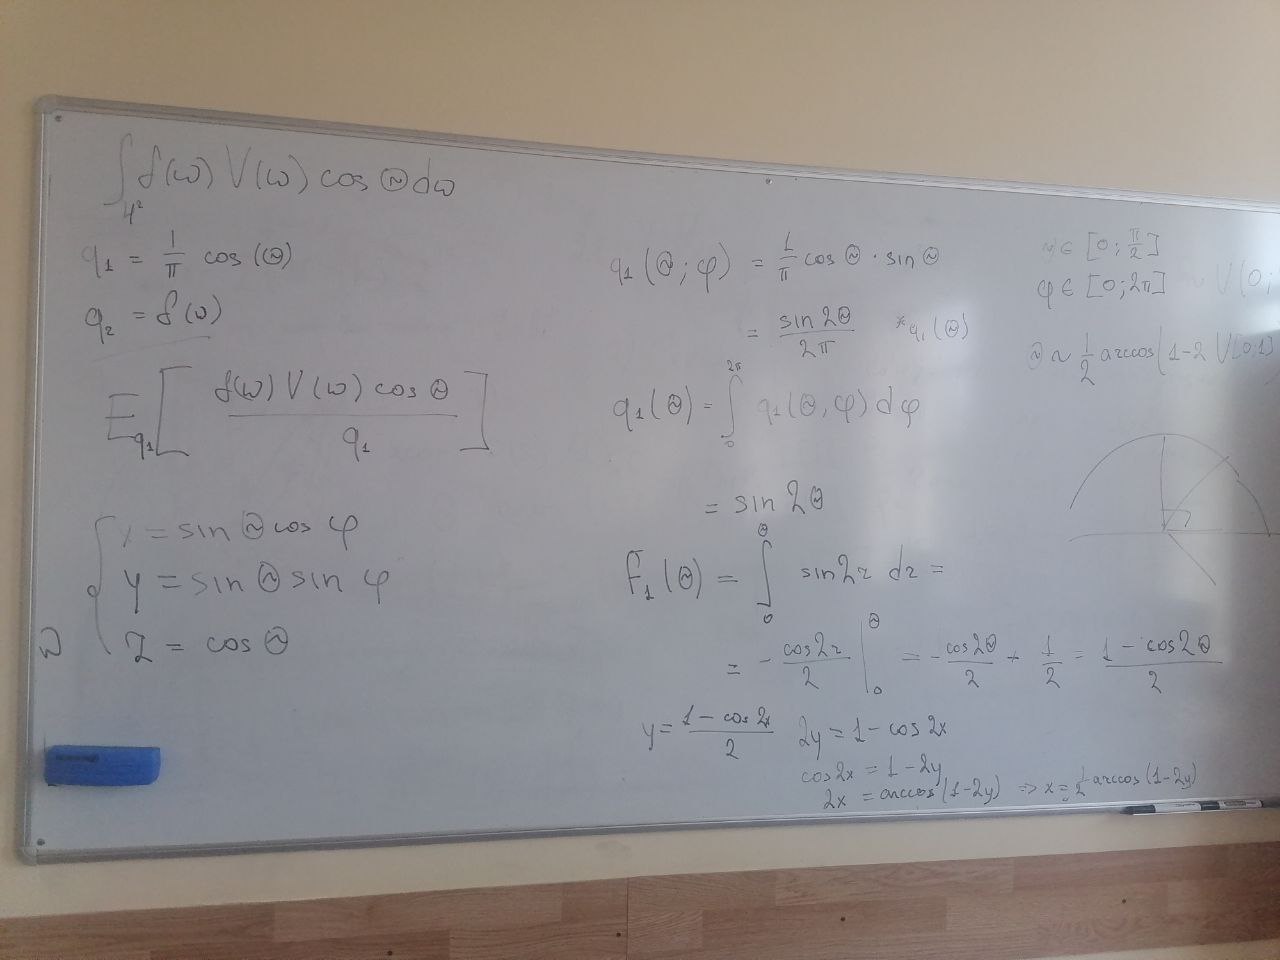 ∫_{H²} f(ω) V(ω) cos Θ dω
q₁ = 1/π cos(Θ)
q₂ = f(ω)
E_{q₁} [ f(ω) V(ω) cos Θ / q₁ ]
x = sin Θ cos φ
y = sin Θ sin φ
ω
z = cos Θ
q₁(Θ; φ) = 1/π cos Θ · sin Θ
= sin 2Θ / 2π *q₁(Θ)
q₁(Θ) = ∫₀^{2π} q₁(Θ, φ) dφ
= sin 2Θ
F₁(Θ) = ∫₀^Θ sin 2r dr =
= - cos 2r / 2 |₀^Θ = - cos 2Θ / 2 + 1/2 = 1 - cos 2Θ / 2
y = 1 - cos 2x / 2 2y = 1 - cos 2x
cos 2x = 1 - 2y
2x = arccos(1-2y) ⇒ x = 1/2 arccos(1-2y)
Θ ∈ [0; π/2]
φ ∈ [0; 2π] ~ U(0;
Θ ~ 1/2 arccos(1-2 U[0,1]